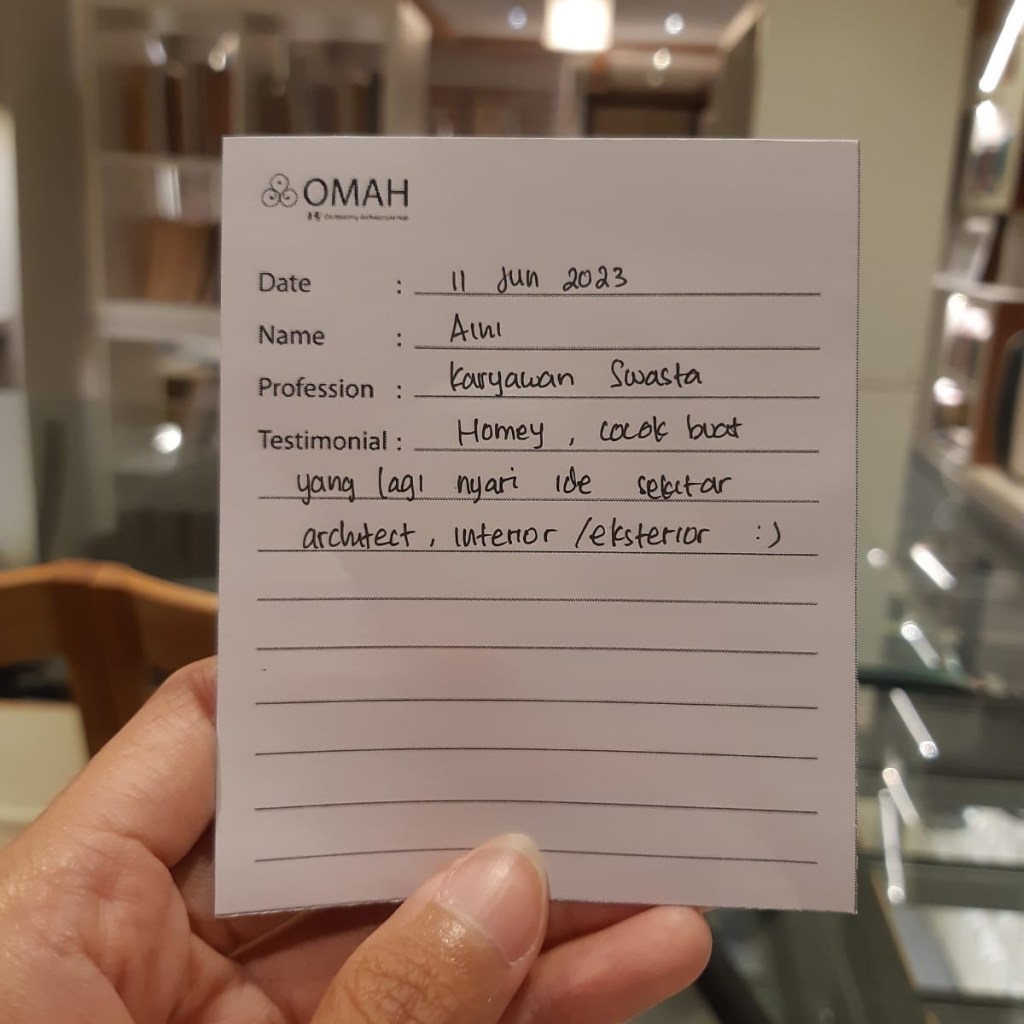 OMAH
Date : 11 Jun 2023
Name : Aini
Profession : Karyawan Swasta
Testimonial : Homey, cocok buat
yang lagi nyari ide sekitar
architect, interior /eksterior :)